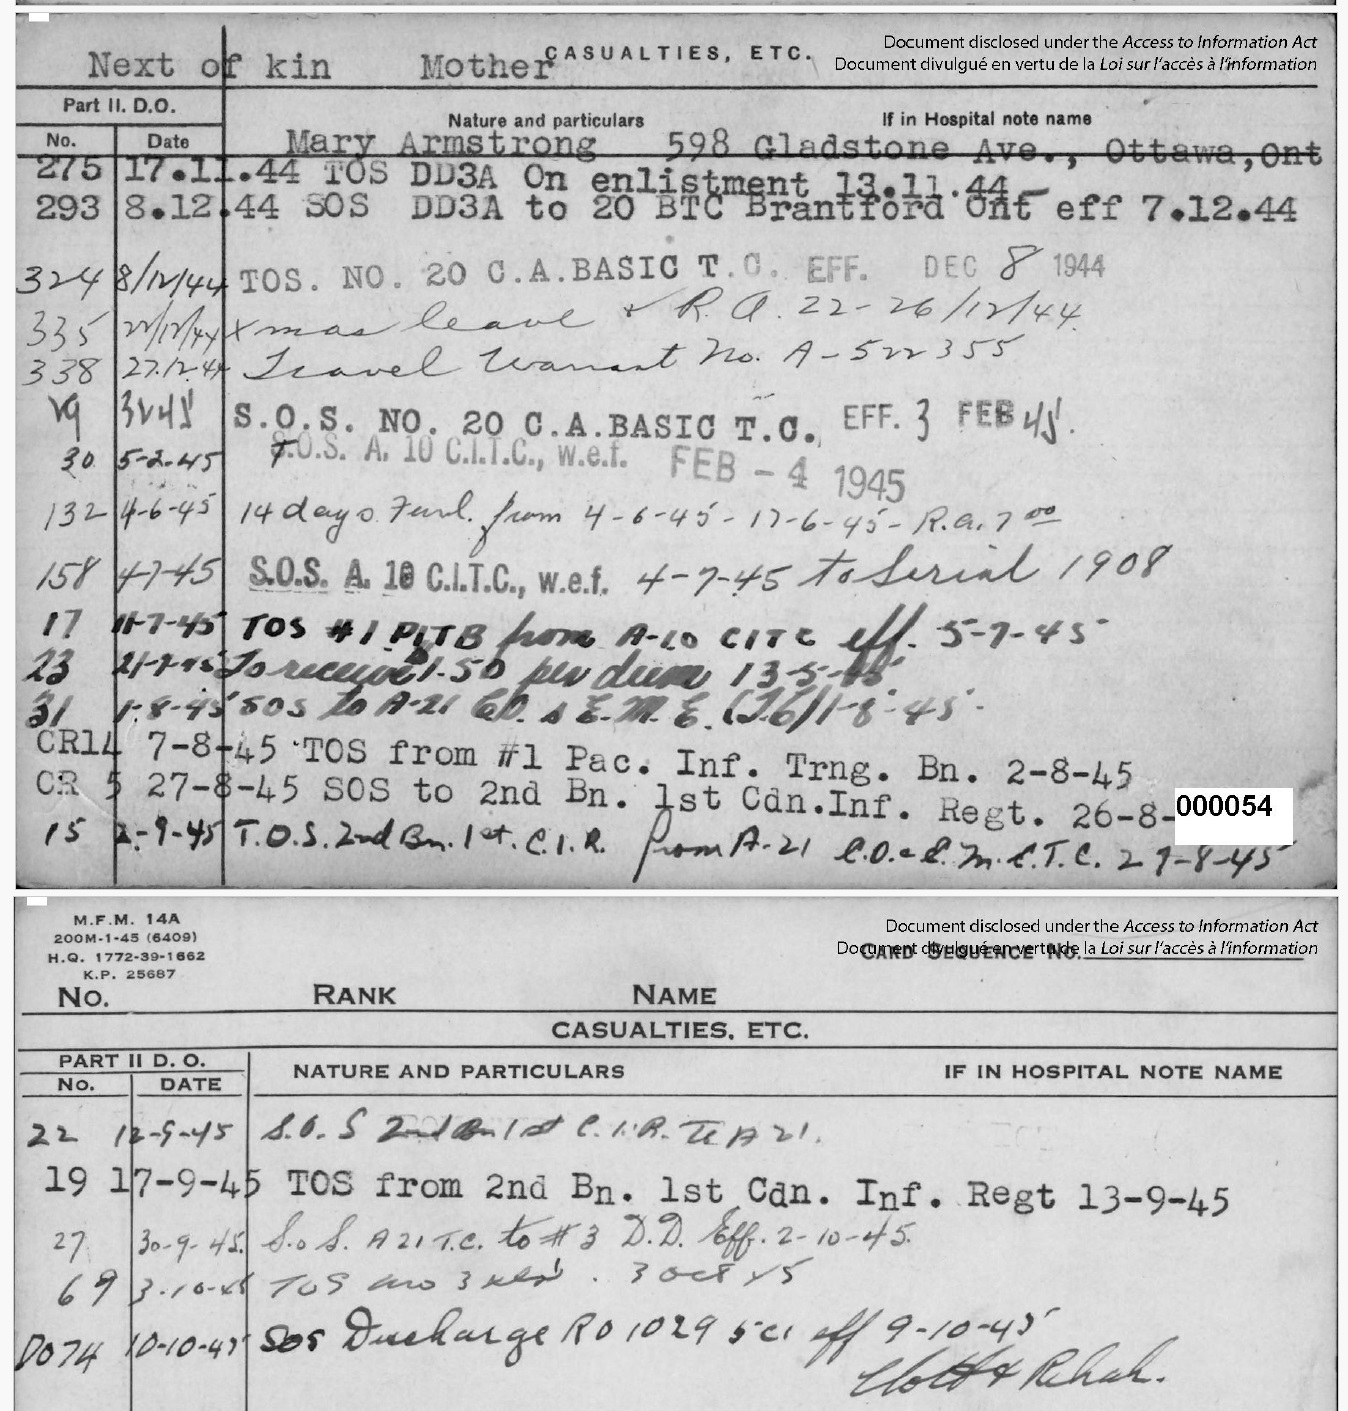 CASUALTIES, ETC.
Document disclosed under the Access to Information Act
Document divulgué en vertu de la Loi sur l'accès à l'information
Next of kin Mother
Part II. D.O.
Nature and particulars
If in Hospital note name
No. Date
Mary Armstrong 598 Gladstone Ave., Ottawa, Ont
275 17.11.44 TOS DD3A On enlistment 13.11.44
293 8.12.44 SOS DD3A to 20 BTC Brantford Ont eff 7.12.44
324 8/12/44 TOS. NO. 20 C.A. BASIC T.C. EFF. DEC 8 1944
335 22/12/44 Xmas leave & R.A. 22-26/12/44.
338 27.12.44 Travel Warrant No. A-522355
29 3 2 45 S.O.S. NO. 20 C.A. BASIC T.C. EFF. 3 FEB 45.
30 5-2-45 T.O.S. A. 10 C.I.T.C., w.e.f. FEB - 4 1945
132 4-6-45 14 days Furl. from 4-6-45 - 17-6-45 - R.A. 7 00
158 4-7-45 S.O.S. A. 10 C.I.T.C., w.e.f. 4-7-45 to Serial 1908
17 11-7-45 TOS #1 PITB from A-10 CITC eff. 5-7-45
23 21-7-45 To receive 1.50 per diem 13-5-45
31 1-8-45 SOS to A-21 (T.6) 1-8-45-
CR14 7-8-45 TOS from #1 Pac. Inf. Trng. Bn. 2-8-45
CR 5 27-8-45 SOS to 2nd Bn. 1st Cdn.Inf. Regt. 26-8-
000054
15 2-9-45 T.O.S. 2nd Bn. 1st. C.I.R. from A-21 27-8-45
M.F.M. 14A
200M-1-45 (6409)
H.Q. 1772-39-1662
K.P. 25687
Document disclosed under the Access to Information Act
Document divulgué en vertu de la Loi sur l'accès à l'information
CARD SEQUENCE NO.
NO. RANK NAME
CASUALTIES, ETC.
PART II D. O.
NO. DATE
NATURE AND PARTICULARS IF IN HOSPITAL NOTE NAME
22 12-9-45 S.O.S 2nd Bn 1st C.I.R. To A 21.
19 17-9-45 TOS from 2nd Bn. 1st Cdn. Inf. Regt 13-9-45
27 30-9-45. S.o.S. A 21 T.C. to #3 D.D. Eff. 2-10-45.
69 3-10-45 TOS 3 3 Oct 45
DO74 10-10-45 SOS Discharge RO 1029 5c1 eff 9-10-45
Rehab.